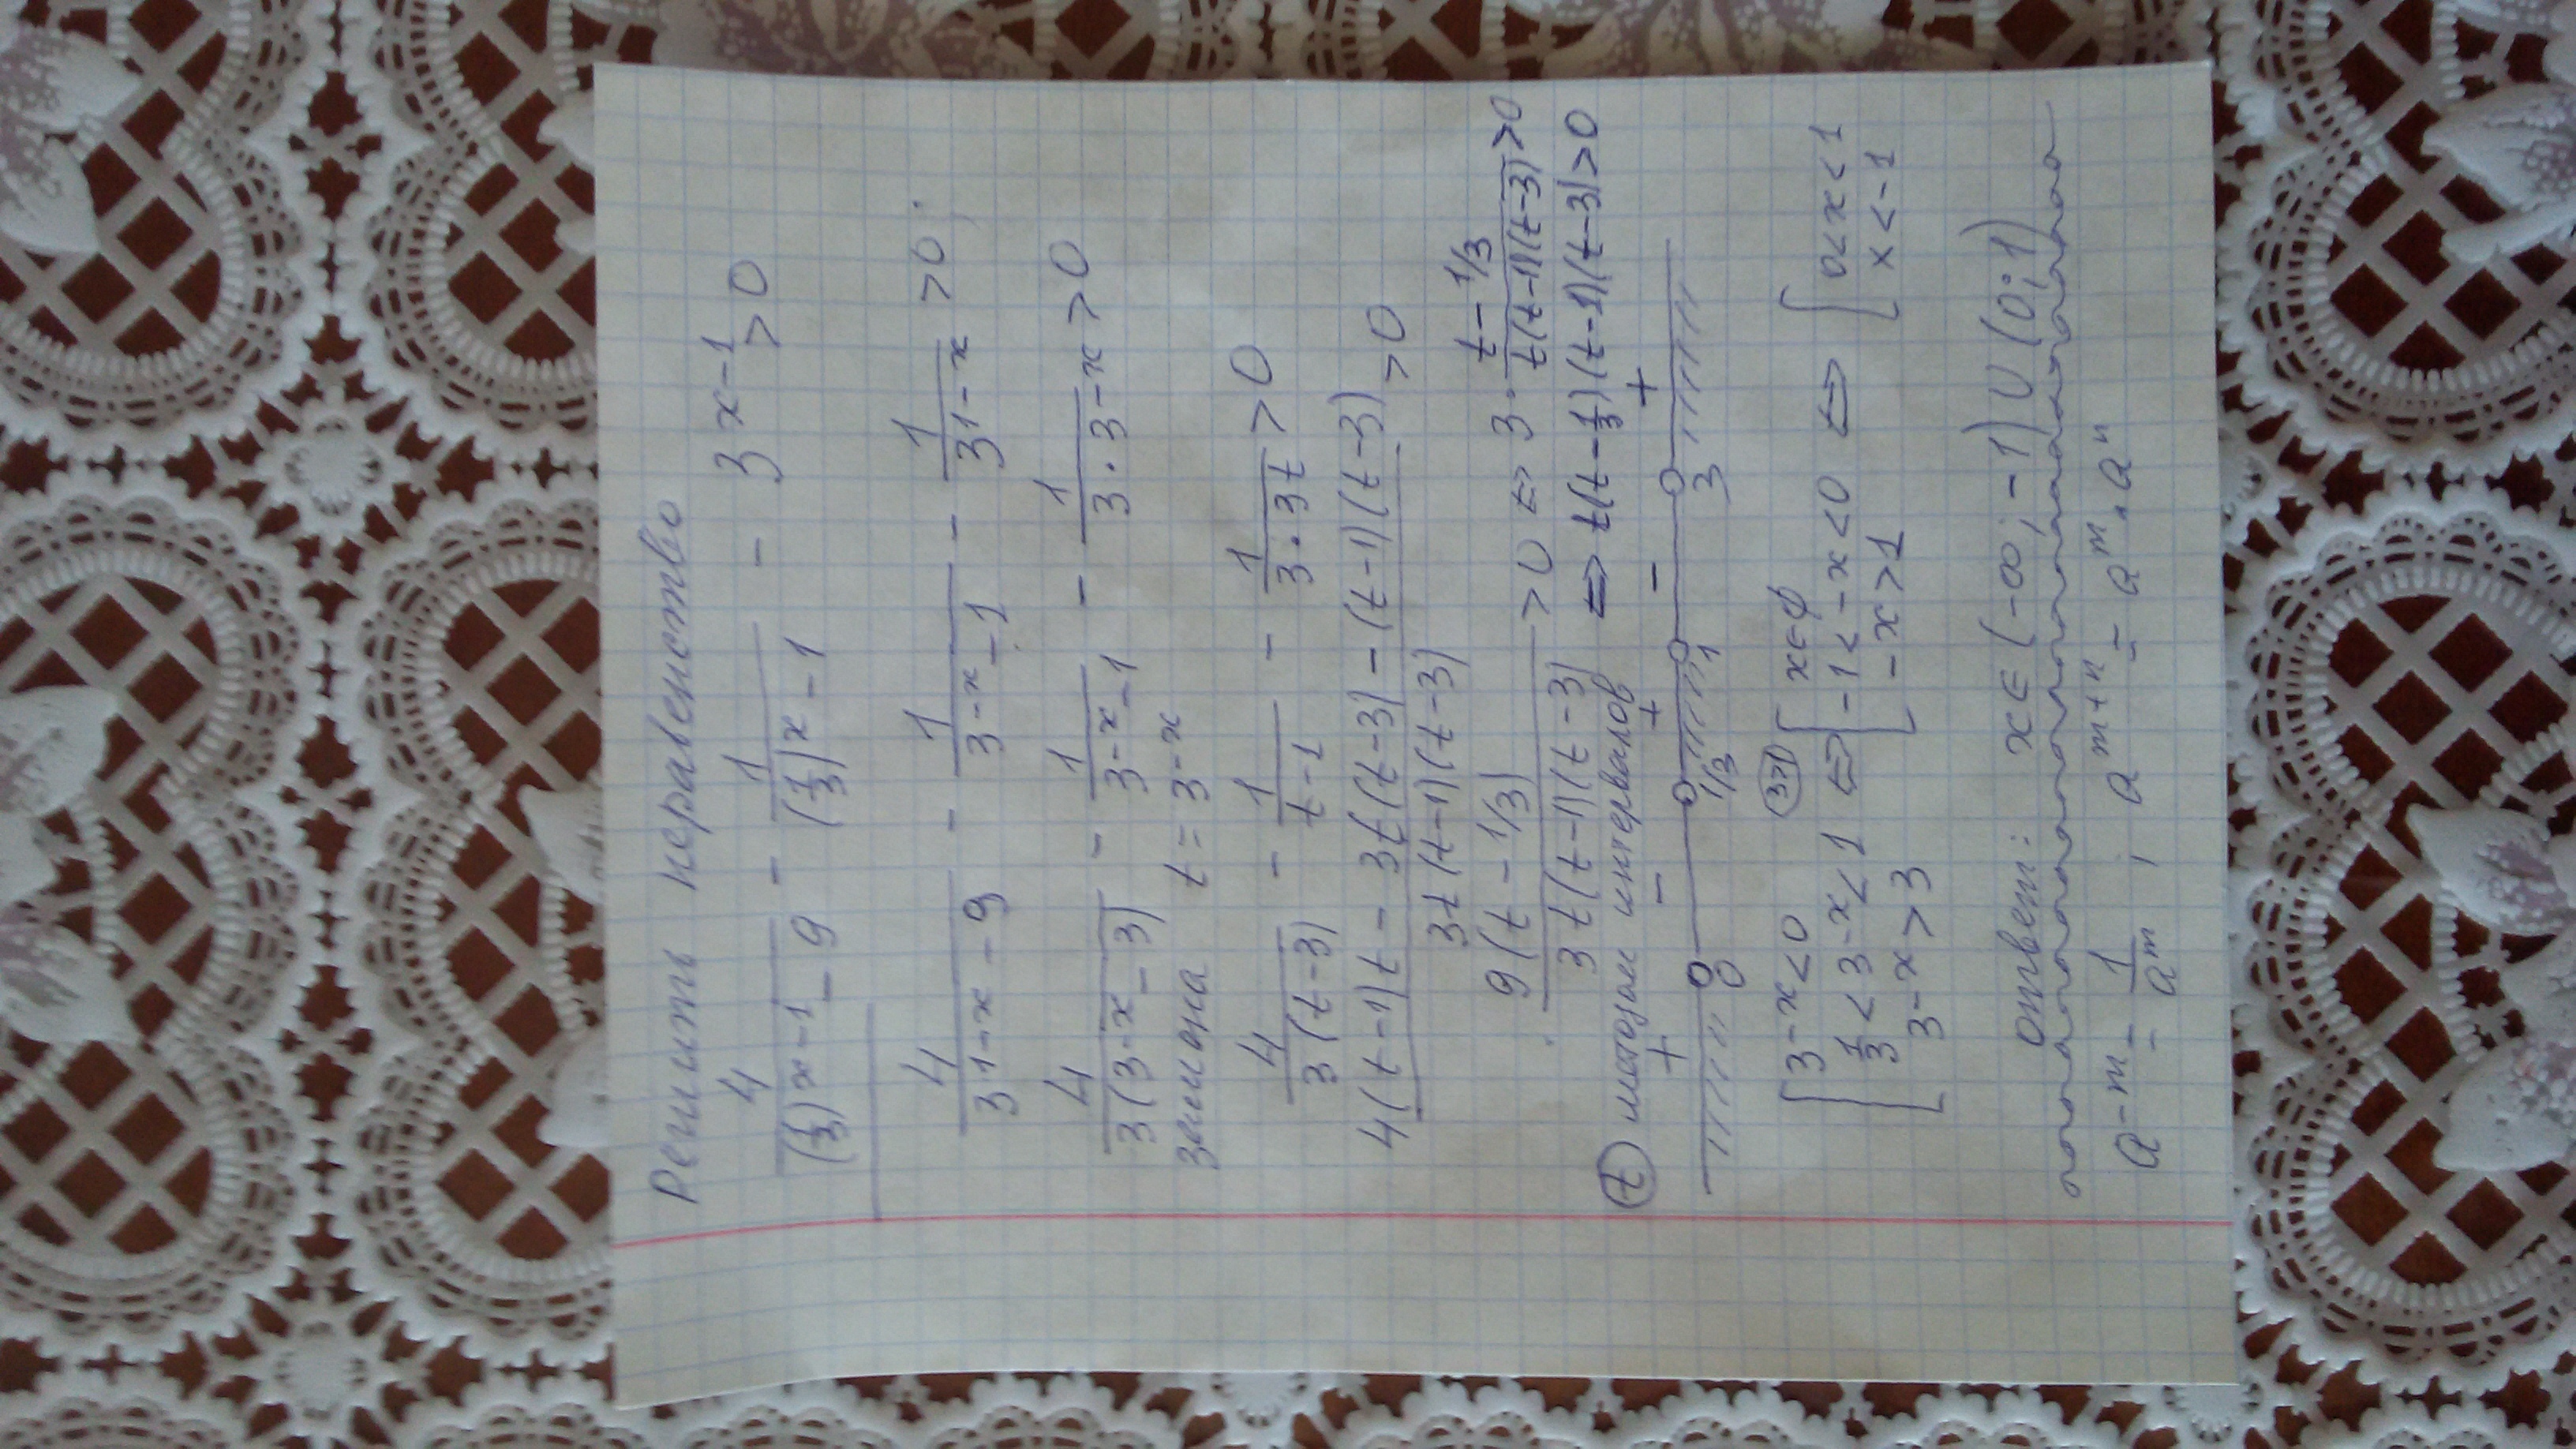 Решить неравенство
4/((1/3)^(x-1) - 9) - 1/((1/3)^x - 1) - 3^(x-1) > 0
4/(3^(1-x) - 9) - 1/(3^(-x) - 1) - 1/3^(1-x) > 0;
4/(3(3^(-x) - 3)) - 1/(3^(-x) - 1) - 1/(3·3^(-x)) > 0
замена t = 3^(-x)
4/(3(t-3)) - 1/(t-1) - 1/(3·3t) > 0
(4(t-1)t - 3t(t-3) - (t-1)(t-3))/(3t(t-1)(t-3)) > 0
9(t - 1/3)/(3t(t-1)(t-3)) > 0 ⇔ 3·(t - 1/3)/(t(t-1)(t-3)) > 0
⇔ t(t - 1/3)(t-1)(t-3) > 0
(t) методом интервалов
+ - + - +
0 1/3 1 3
[3^(-x) < 0 (3>1) [x ∈ ∅
1/3 < 3^(-x) < 1 ⇔ -1 < -x < 0 ⇔ [0 < x < 1
3^(-x) > 3 -x > 1 x < -1
ответ: x ∈ (-∞; -1) ∪ (0; 1)
a^(-m) = 1/a^m ; a^(m+n) = a^m · a^n